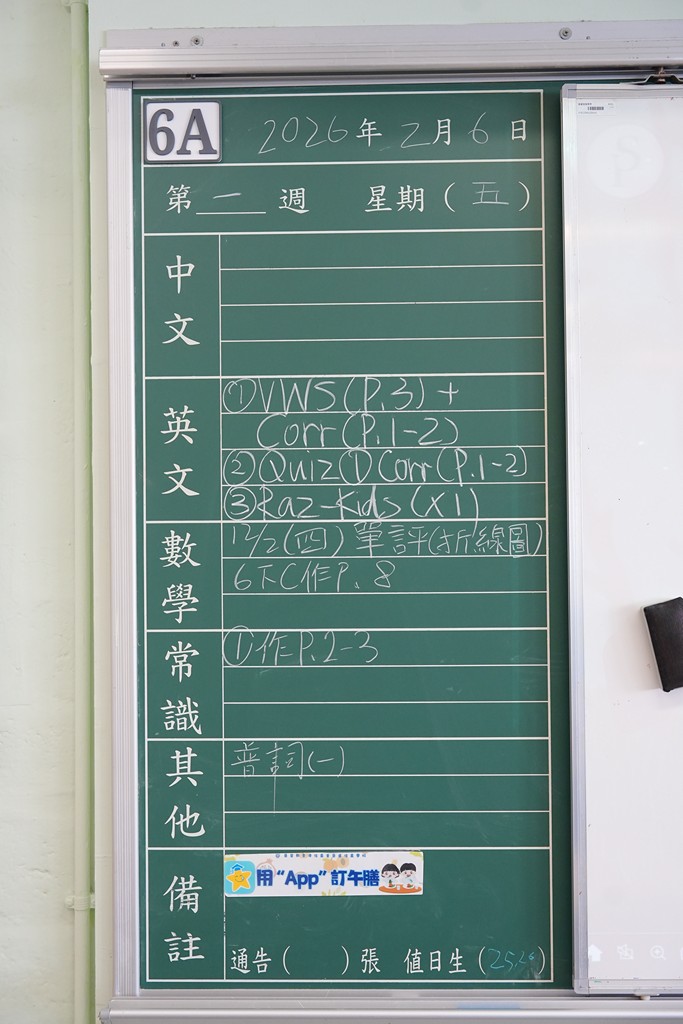 6A
2026年 2月 6日
第 一 週 星期 ( 五 )
中文
英文
①VWS (P.3) +
Corr (P.1-2)
②Quiz① Corr (P.1-2)
③Raz-Kids (X1)
數學
12/2 (四) 單評(折線圖)
6下C作P. 8
常識
①作P.2-3
其他
普詞(一)
備註
用 “App” 訂午膳
通告 ( ) 張 值日生 (25,26)